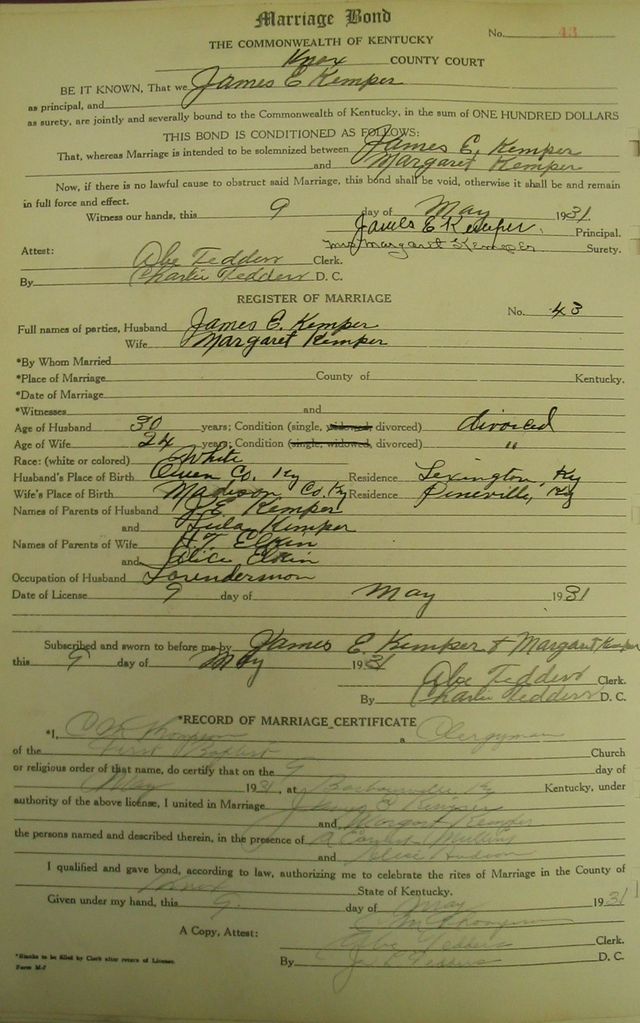 Marriage Bond
No. 43
THE COMMONWEALTH OF KENTUCKY
Knox COUNTY COURT
BE IT KNOWN, That we James E Kemper
as principal, and
as surety, are jointly and severally bound to the Commonwealth of Kentucky, in the sum of ONE HUNDRED DOLLARS
THIS BOND IS CONDITIONED AS FOLLOWS:
That, whereas Marriage is intended to be solemnized between James E. Kemper
and Margaret Kemper
Now, if there is no lawful cause to obstruct said Marriage, this bond shall be void, otherwise it shall be and remain
in full force and effect.
Witness our hands, this 9 day of May 1931
James E Kemper. Principal.
Mrs Margaret Kemper Surety.
Attest: Abe Tedders Clerk.
By Charlie Tedders D. C.
REGISTER OF MARRIAGE
No. 43
Full names of parties, Husband James E. Kemper
Wife Margaret Kemper
*By Whom Married
*Place of Marriage County of Kentucky.
*Date of Marriage
*Witnesses and
Age of Husband 30 years; Condition (single, widowed, divorced) divorced
Age of Wife 24 years; Condition (single, widowed, divorced) "
Race: (white or colored) White
Husband's Place of Birth Owen Co. Ky Residence Lexington, Ky
Wife's Place of Birth Madison Co. Ky Residence Pineville, Ky
Names of Parents of Husband J.E. Kemper
and Lula Kemper
Names of Parents of Wife H.T. Elkin
and Alice Elkin
Occupation of Husband
Date of License 9 day of May 1931
Subscribed and sworn to before me by James E. Kemper & Margaret Kemper
this 9 day of May 1931
Abe Tedders Clerk.
By Charlie Tedders D. C.
*RECORD OF MARRIAGE CERTIFICATE
*I, C M Thompson a Clergyman
of the First Baptist Church
or religious order of that name, do certify that on the 9 day of
May 1931, at Barbourville Ky Kentucky, under
authority of the above license, I united in Marriage James E Kemper
and Margaret Kemper
the persons named and described therein, in the presence of Mullins
and Hudson
I qualified and gave bond, according to law, authorizing me to celebrate the rites of Marriage in the County of
Knox State of Kentucky.
Given under my hand, this 9 day of May 1931
C M Thompson
A Copy, Attest: Abe Tedders Clerk.
By Tedders D. C.
*Blanks to be filled by Clerk after return of License.
Form M-7